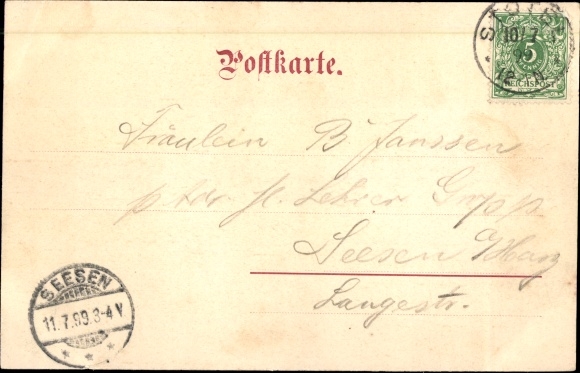 Postkarte.
10/7
5
PFENNIG
REICHSPOST
Fräulein B Janssen
p adr. H. Lehrer
Seesen a/Harz
Langestr.
SEESEN
11.7.99.3-4V
* * *